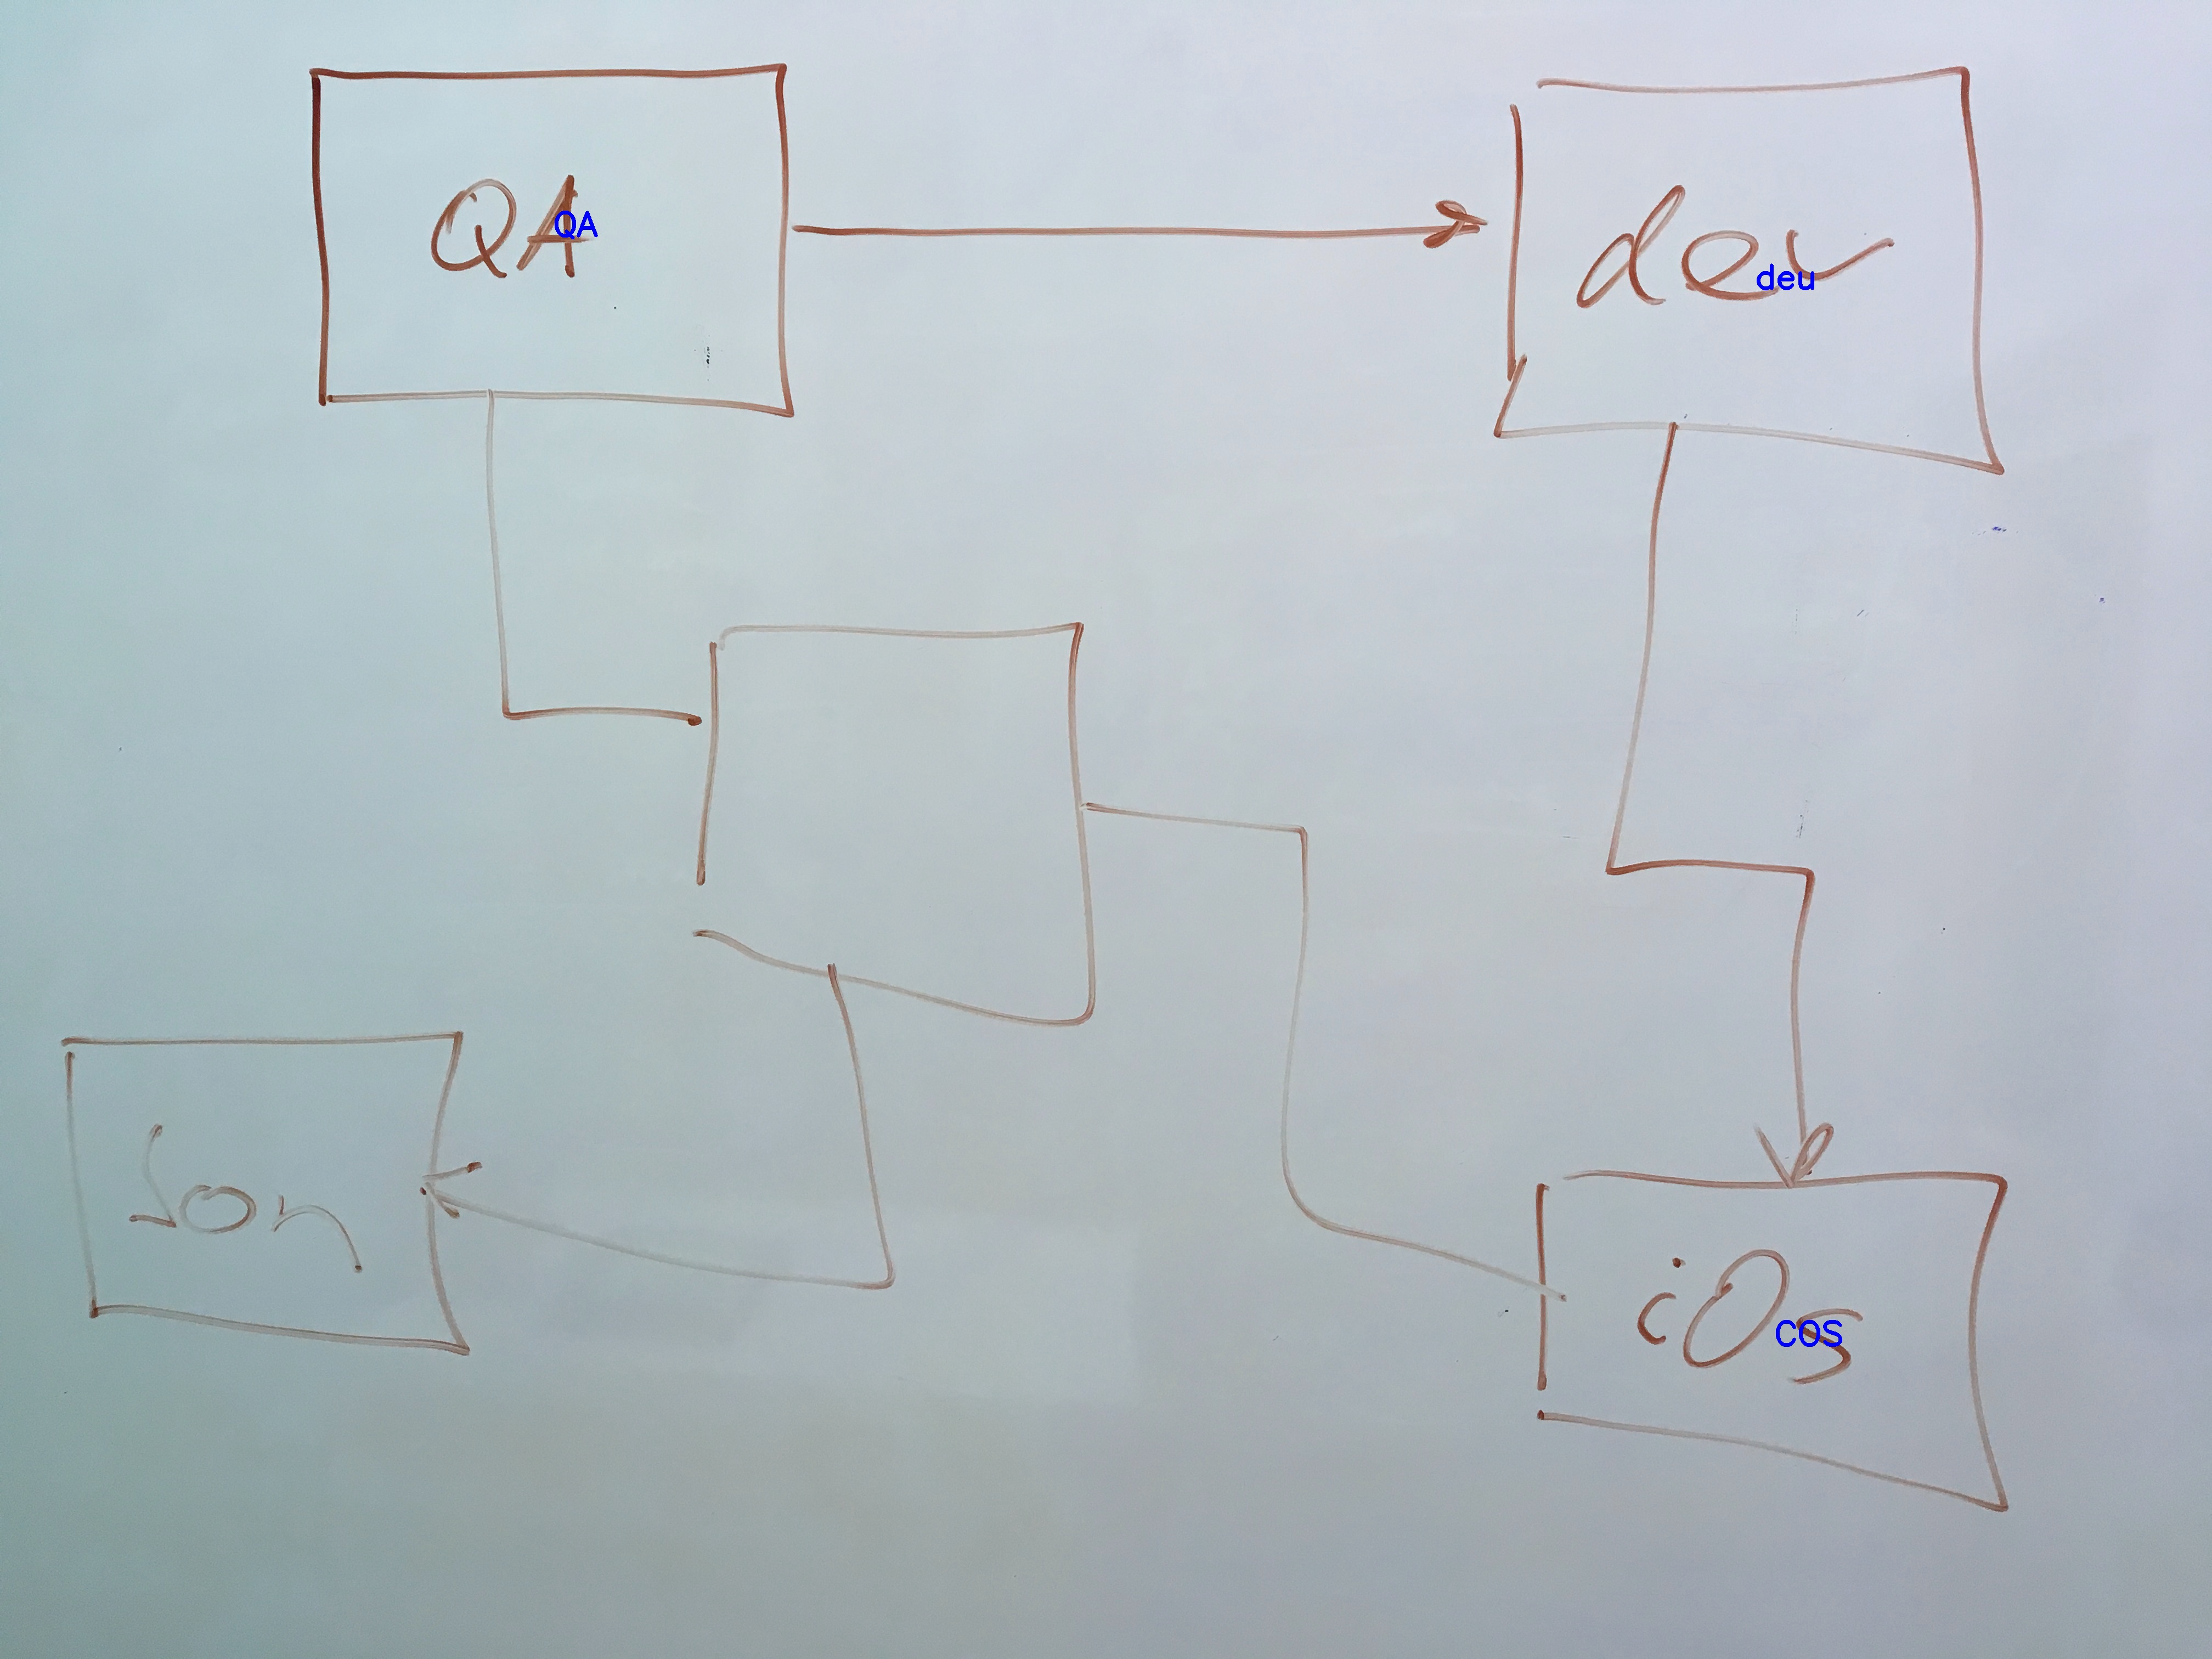 QA
QA
dev
deu
Son
iOs
COS